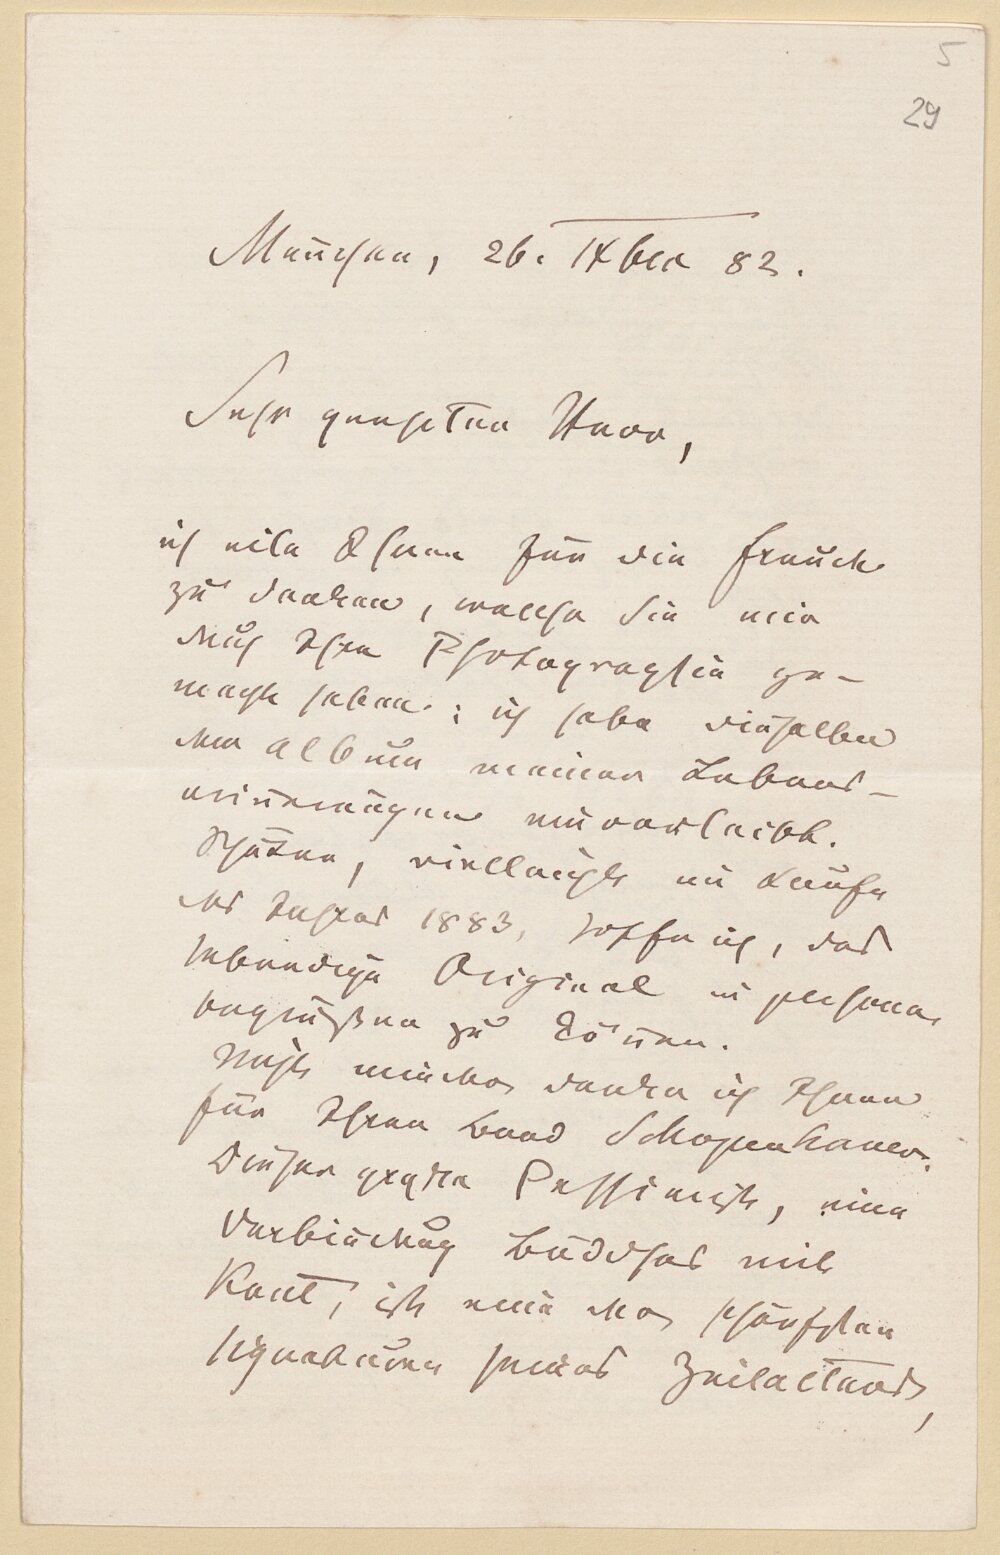 5
29
München, 26. IXber 82.
Sehr geehrter Herr,
ich eile Ihnen für die Freude
zu danken, welche Sie mir
durch Ihre Photographie ge-
macht haben; ich habe dieselbe
dem Album meiner Lebens-
erinnerungen einverleibt.
Später, vielleicht im Laufe
des Jahres 1883, hoffe ich, das
lebendige Original in persona
begrüßen zu können.
Nicht minder danke ich Ihnen
für Ihren Band Schopenhauer.
Dieser große Pessimist, eine
Verbindung Buddhas mit
Kant, ist eine der schärfsten
Signaturen seines Zeitalters,